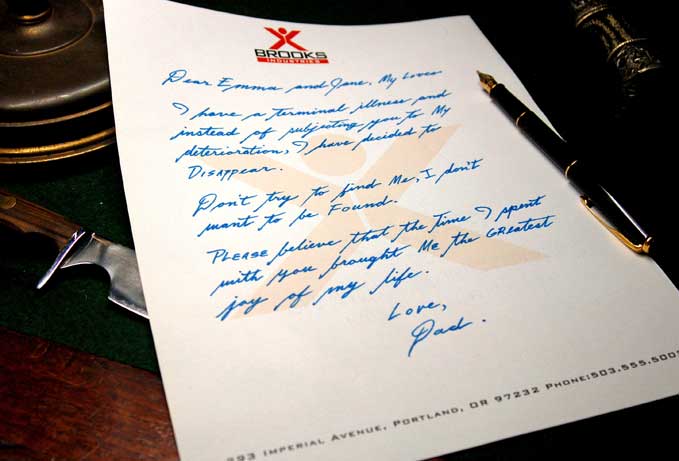 BROOKS
INDUSTRIES
Dear Emma and Jane, My Loves
I have a terminal illness and
instead of subjecting you to My
deterioration, I have decided to
Disappear.
Don't try to find Me, I don't
want to be Found.
PLEASE believe that the time I spent
with you brought Me the GReatest
joy of my life.
Love,
Dad.
393 IMPERIAL AVENUE, PORTLAND, OR 97232 PHONE:503.555.500